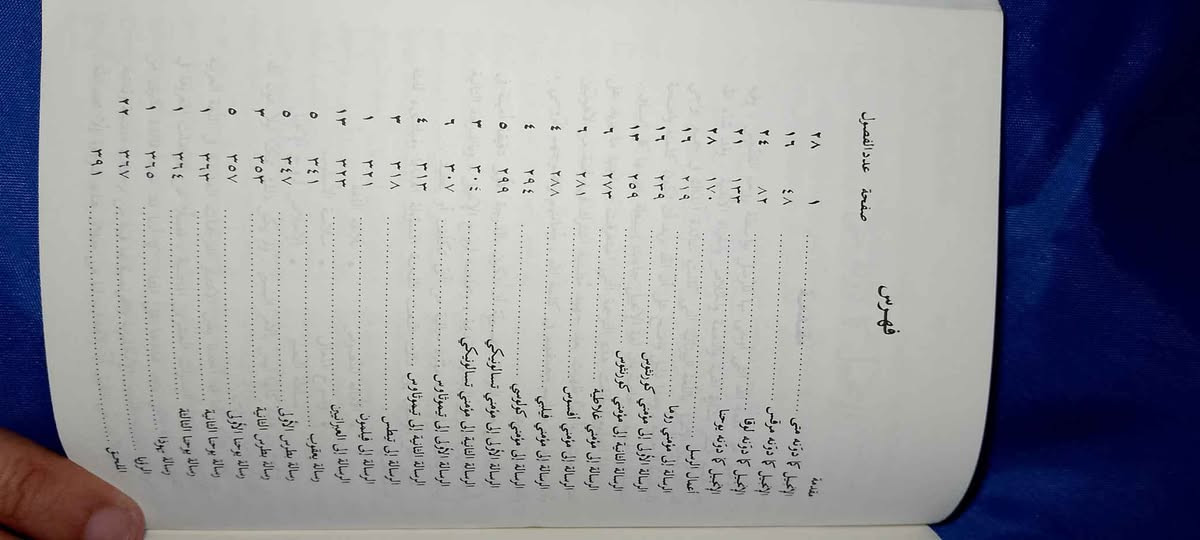 فهرس
صفحة عدد الفصول
مقدمة
الإنجيل كما دوّنه متى ........ ١ ٢٨
الإنجيل كما دوّنه مرقس ........ ٤٨ ١٦
الإنجيل كما دوّنه لوقا ........ ٨٢ ٢٤
الإنجيل كما دوّنه يوحنا ........ ١٣٣ ٢١
أعمال الرسل ........ ١٧٠ ٢٨
الرسالة إلى مؤمني روما ........ ٢١٩ ١٦
الرسالة الأولى إلى مؤمني كورنثوس ........ ٢٣٩ ١٦
الرسالة الثانية إلى مؤمني كورنثوس ........ ٢٥٩ ١٣
الرسالة إلى مؤمني غلاطية ........ ٢٧٣ ٦
الرسالة إلى مؤمني أفسوس ........ ٢٨١ ٦
الرسالة إلى مؤمني فيلبي ........ ٢٨٨ ٤
الرسالة إلى مؤمني كولوسي ........ ٢٩٤ ٤
الرسالة الأولى إلى مؤمني تسالونيكي ........ ٢٩٩ ٥
الرسالة الثانية إلى مؤمني تسالونيكي ........ ٣٠٤ ٣
الرسالة الأولى إلى تيموثاوس ........ ٣٠٧ ٦
الرسالة الثانية إلى تيموثاوس ........ ٣١٣ ٤
الرسالة إلى تيطس ........ ٣١٨ ٣
الرسالة إلى فيلمون ........ ٣٢١ ١
الرسالة إلى العبرانيين ........ ٣٢٣ ١٣
رسالة يعقوب ........ ٣٤١ ٥
رسالة بطرس الأولى ........ ٣٤٧ ٥
رسالة بطرس الثانية ........ ٣٥٣ ٣
رسالة يوحنا الأولى ........ ٣٥٧ ٥
رسالة يوحنا الثانية ........ ٣٦٣ ١
رسالة يوحنا الثالثة ........ ٣٦٤ ١
رسالة يهوذا ........ ٣٦٥ ١
الرؤيا ........ ٣٦٧ ٢٢
الملحق ........ ٣٩١